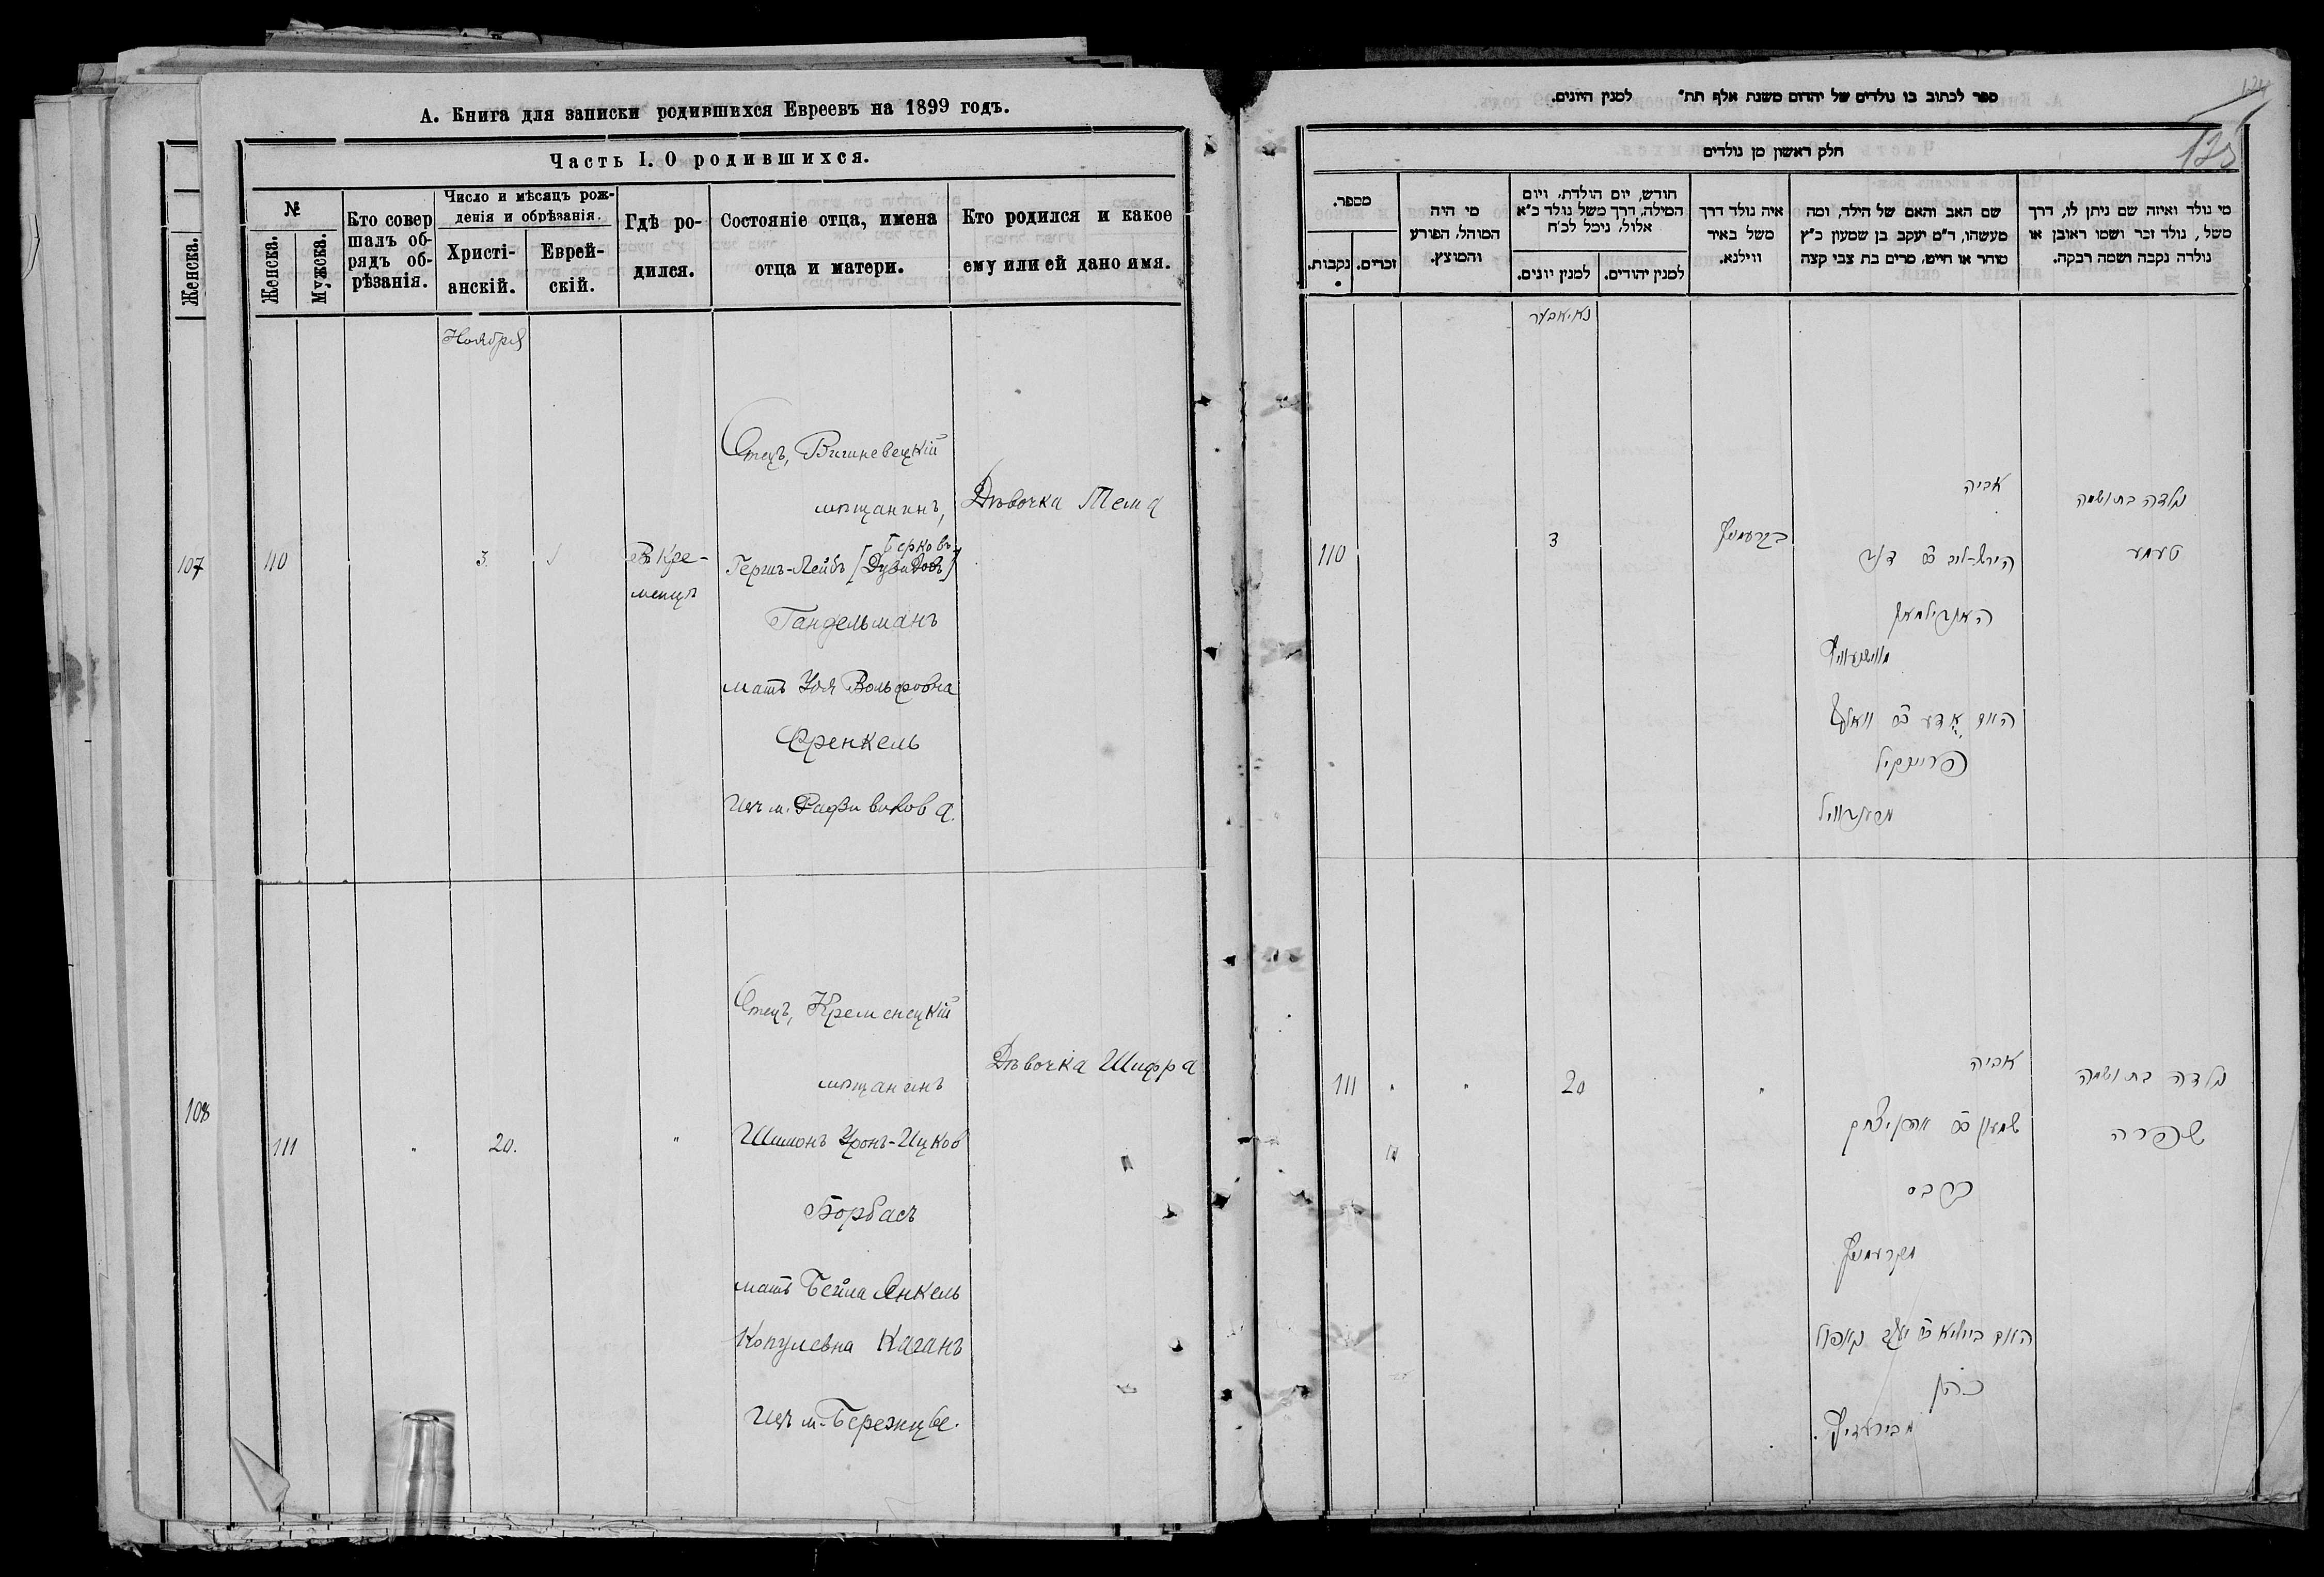 А. Книга для записки родившихся Евреевъ на 1899 годъ.
Часть I. О родившихся.
№
Женска.
Мужска.
Кто совер
шалъ об-
рядъ об-
рѣзанія.
Число и мѣсяцъ рож-
денія и обрѣзанія.
Христі-
анскій.
Еврей-
скій.
Гдѣ ро-
дился.
Состояніе отца, имена
отца и матери.
Кто родился и какое
ему или ей дано имя.
Женска.
107
108
Ноября
110
3
въ Кре-
менцѣ
Отецъ, Вишневецкій
мѣщанинъ,
Берковъ
Гершъ-Лейбъ [Дувидовъ]
Гандельманъ
мать Удя Вольфовна
Френкель
изъ м. Радзивилова.
Дѣвочка Тема
111
"
20.
"
Отецъ, Кременецкій
мѣщанинъ
Шимонъ Уронъ-Ицков
Борбасъ
мать Бейла Янкель
Копулевна Каганъ
изъ м. Бережце.
Дѣвочка Шифра
ספר לכתוב בו נולדים של יהדום משנת אלף תת" למנין היונים.
125
חלק ראשון מן נולדים
מספר.
נקבות.
זכרים.
מי היה
המוהל, הפורע
והמוצץ.
חודש, יום הולדת, ויום
המילה, דרך משל נולד כ"א
אלול, נימל לכ"ח
למנין יונים.
למנין יהודים.
איה נולד דרך
משל באיר
ווילנא.
שם האב והאם של הילד, ומה
מעשהו, ד"מ יעקב בן שמעון כ"ץ
סוחר או חייט, מרים בת צבי קצה
מי נולד ואיזה שם ניתן לו, דרך
משל, נולד זכר ושמו ראובן או
נולדה נקבה ושמה רבקה.
נאיאבער
110
3
בקרעמניץ
אביה
הירש-ליב
האנדילמאן
מווישניוויץ
האם
פרענקיל
נולדה בת ושמה
טעמע
111
"
"
20
"
אביה
שמעון
מקרעמניץ
האם ביילא
כהן
נולדה בת ושמה
שפרה